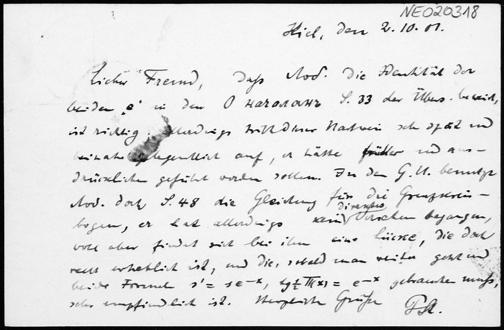 NEO20318
Kiel, den 2.10.01.
Lieber Freund, Daß Lob. die Identität der
beiden „e" in den О началахъ S. 33 der Übers. beweist,
ist richtig. Allerdings tritt dieser Nachweis sehr spät und
beinahe gelegentlich auf, er hätte früher und aus-
drücklich geführt werden sollen. In den G. U. benutzt
Lob. doch S. 48 die Gleichung für die Grenzkreis-
bogen, er hat allerdings kein directes Versehen begangen,
wohl aber findet sich bei ihm eine Lücke, die doch
recht erheblich ist, und die, sobald man weiter geht und
beide Formeln s' = se⁻ˣ, tg½Π(x) = e⁻ˣ gebrauchen muss,
sehr empfindlich ist. Herzliche Grüße P. St.